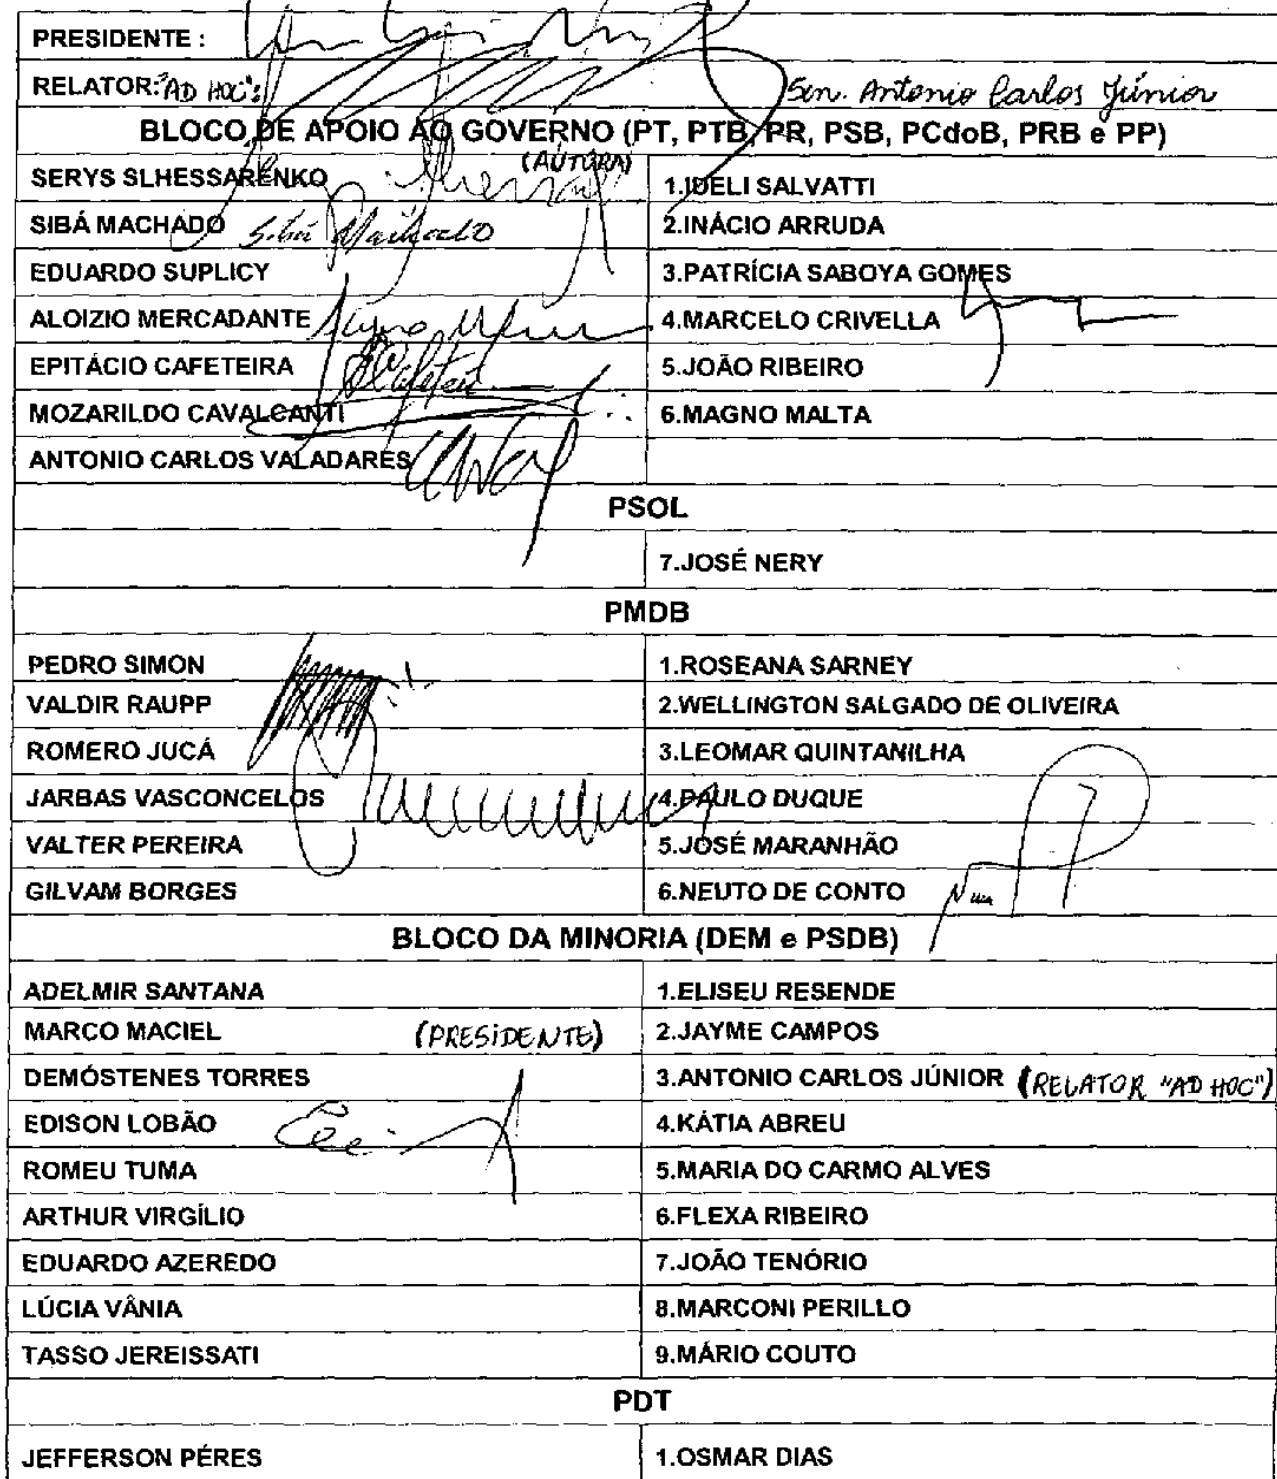 PRESIDENTE :
RELATOR: "AD HOC": Sen. Antonio Carlos Júnior
BLOCO DE APOIO AO GOVERNO (PT, PTB, PR, PSB, PCdoB, PRB e PP)
SERYS SLHESSARENKO (AUTORA) 1.IDELI SALVATTI
SIBÁ MACHADO Sibá Machado 2.INÁCIO ARRUDA
EDUARDO SUPLICY 3.PATRÍCIA SABOYA GOMES
ALOIZIO MERCADANTE 4.MARCELO CRIVELLA
EPITÁCIO CAFETEIRA 5.JOÃO RIBEIRO
MOZARILDO CAVALCANTI 6.MAGNO MALTA
ANTONIO CARLOS VALADARES
PSOL
7.JOSÉ NERY
PMDB
PEDRO SIMON 1.ROSEANA SARNEY
VALDIR RAUPP 2.WELLINGTON SALGADO DE OLIVEIRA
ROMERO JUCÁ 3.LEOMAR QUINTANILHA
JARBAS VASCONCELOS 4.PAULO DUQUE
VALTER PEREIRA 5.JOSÉ MARANHÃO
GILVAM BORGES 6.NEUTO DE CONTO
BLOCO DA MINORIA (DEM e PSDB)
ADELMIR SANTANA 1.ELISEU RESENDE
MARCO MACIEL (PRESIDENTE) 2.JAYME CAMPOS
DEMÓSTENES TORRES 3.ANTONIO CARLOS JÚNIOR (RELATOR "AD HOC")
EDISON LOBÃO 4.KÁTIA ABREU
ROMEU TUMA 5.MARIA DO CARMO ALVES
ARTHUR VIRGÍLIO 6.FLEXA RIBEIRO
EDUARDO AZEREDO 7.JOÃO TENÓRIO
LÚCIA VÂNIA 8.MARCONI PERILLO
TASSO JEREISSATI 9.MÁRIO COUTO
PDT
JEFFERSON PÉRES 1.OSMAR DIAS